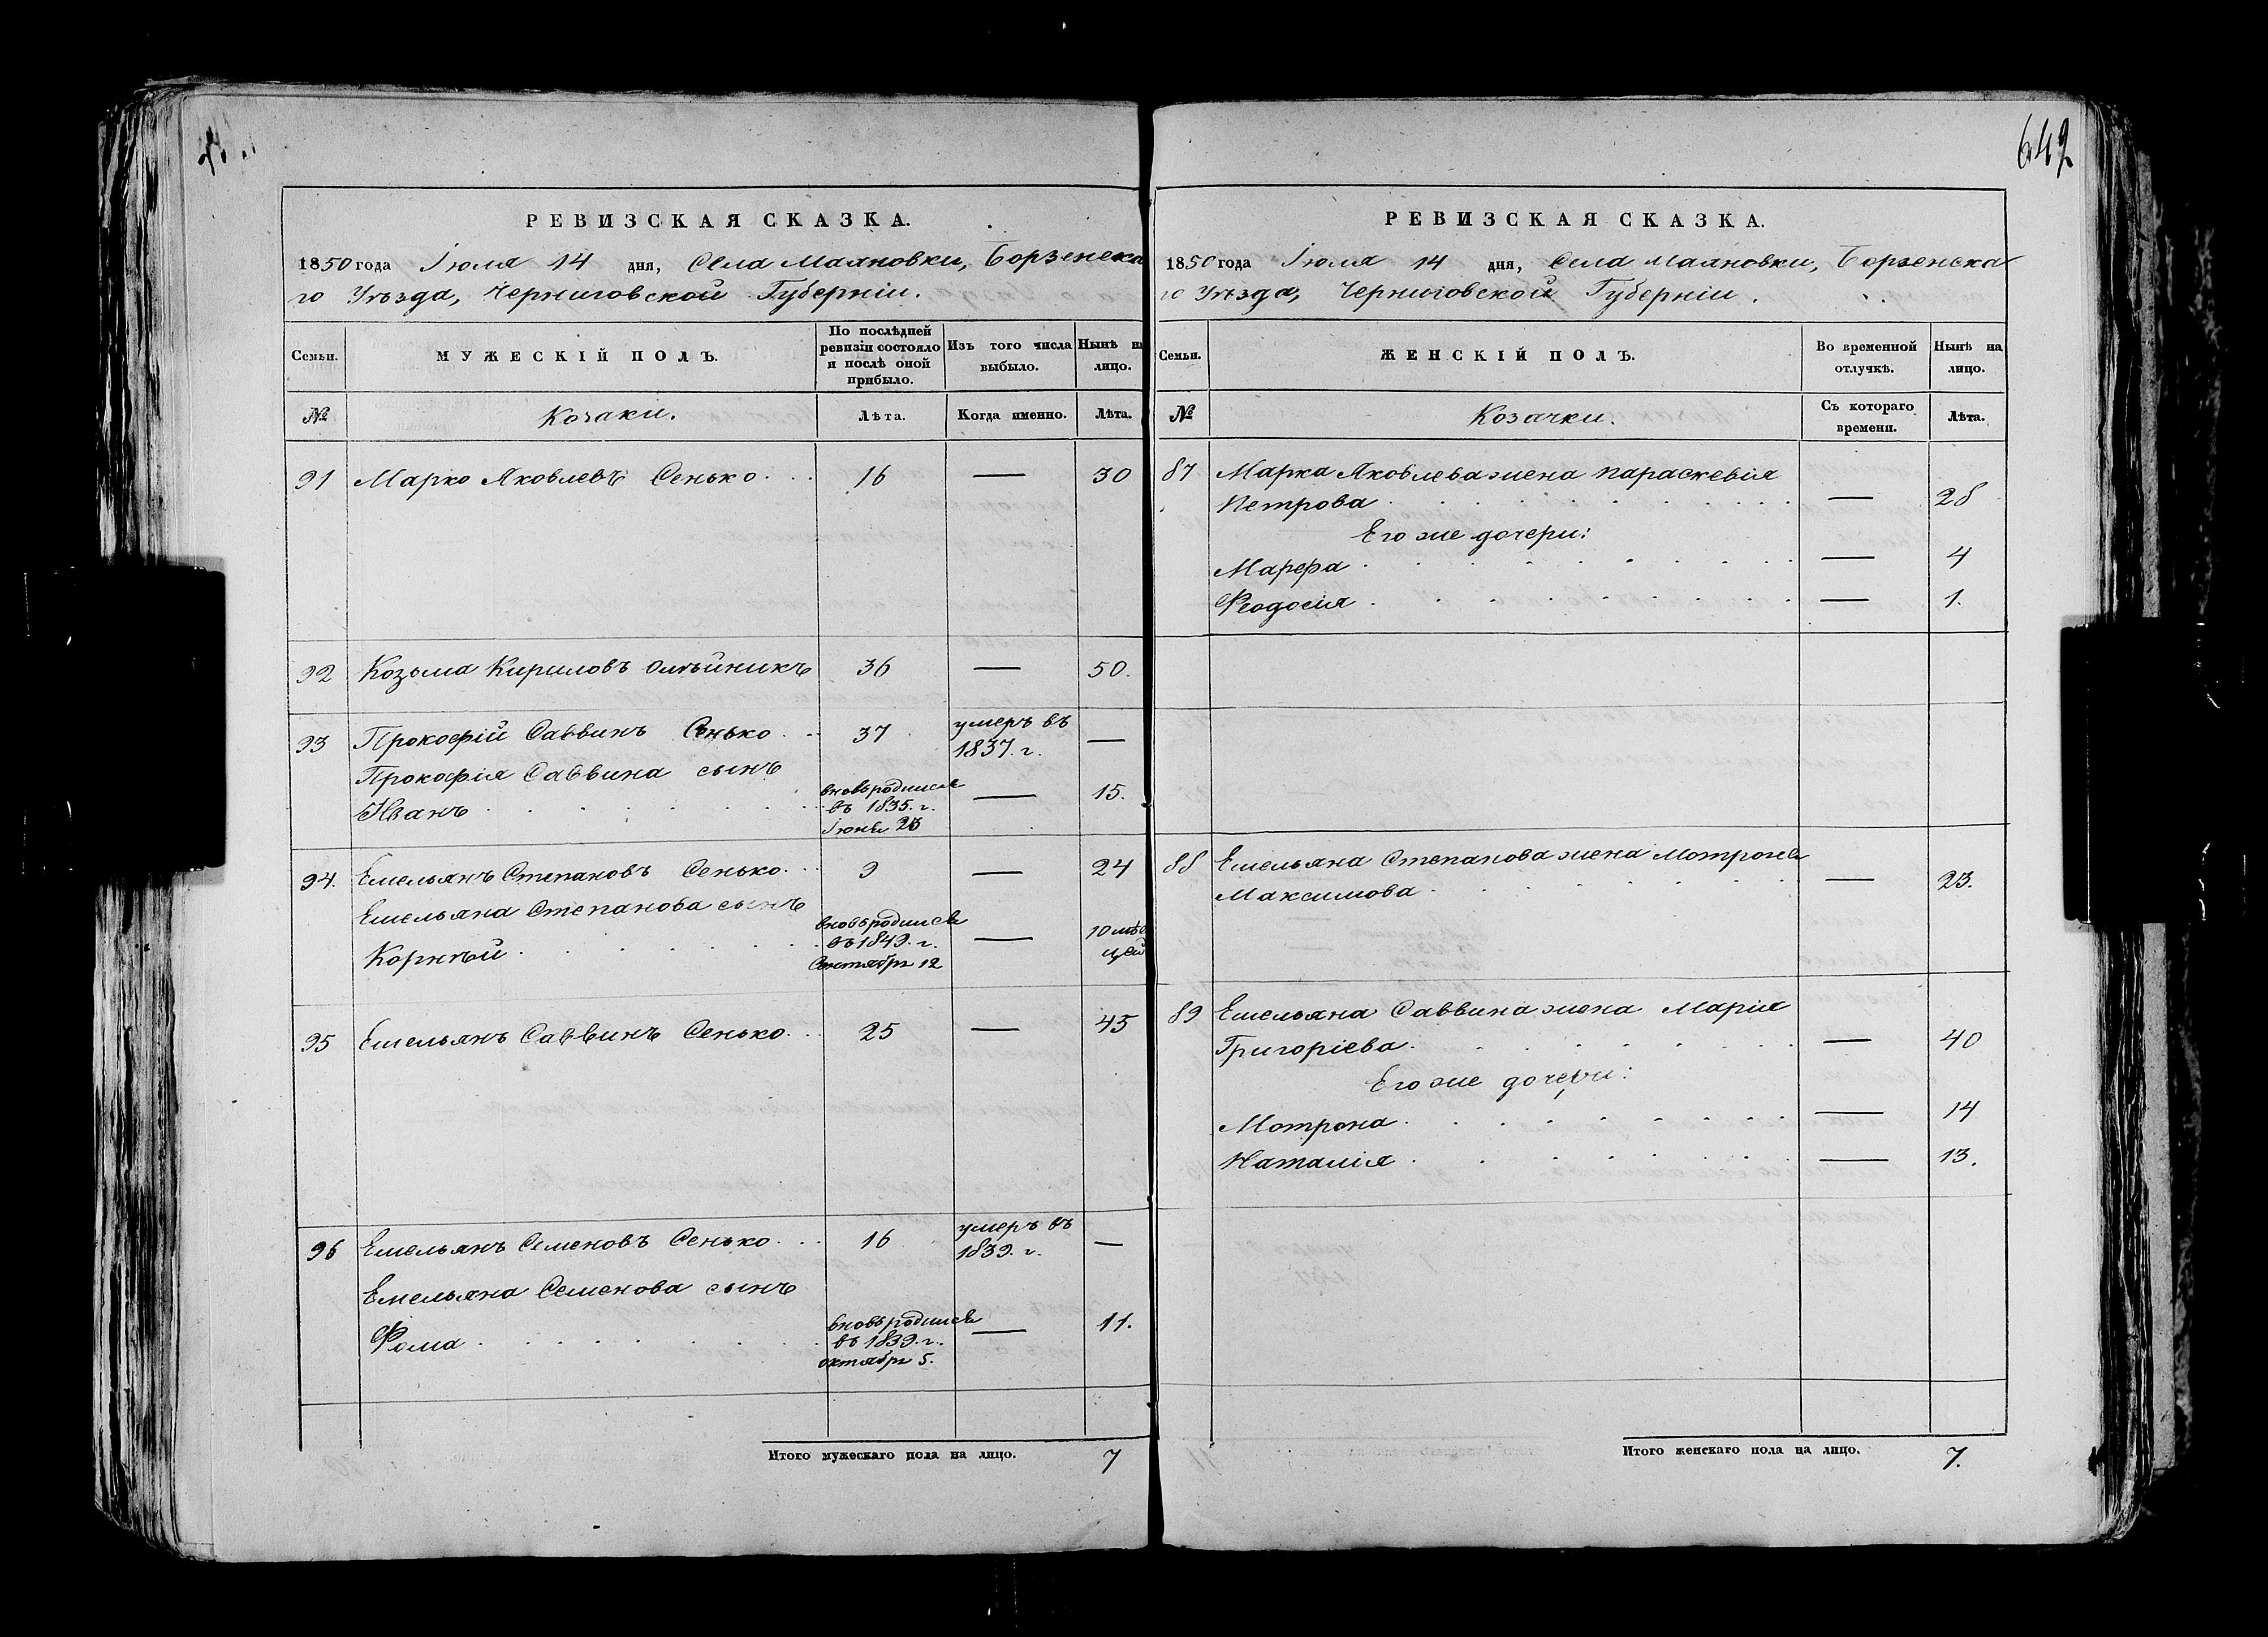 642
РЕВИЗСКАЯ СКАЗКА.
1850 года Іюля 14 дня, Села Маяновки, Борзенска
го Уѣзда, Черниговской Губерніи.
Семьи. МУЖЕСКІЙ ПОЛЪ. По послѣдней ревизіи состояло и послѣ оной прибыло. Изъ того числа выбыло. Нынѣ на лицо.
№ Козаки. Лѣта. Когда именно. Лѣта.
91 Марко Яковлевъ Сенько 16 — 30
92 Козьма Кириловъ Олѣйникъ 36 — 50.
93 Прокофій Саввинъ Сенько 37 умеръ въ 1837. г. —
Прокофія Саввина сынъ
Иванъ вновьродился въ 1835. г. Іюня 23 — 15.
94. Емельянъ Степановъ Сенько 9 — 24
Емельяна Степанова сынъ
Корнѣй вновьродился въ 1849. г. Сентября 12 — 10 мѣсяцей
95 Емельянъ Саввинъ Сенько 25 — 45
96 Емельянъ Семеновъ Сенько 16 умеръ въ 1839. г. —
Емельяна Семенова сынъ
Фома вновьродился въ 1839. г. октября 5. — 11.
Итого мужескаго пола на лицо. 7
РЕВИЗСКАЯ СКАЗКА.
1850 года Іюля 14 дня, Села Маяновки, Борзенска
го Уѣзда, Черниговской Губерніи.
Семьи. ЖЕНСКІЙ ПОЛЪ. Во временной отлучкѣ. Нынѣ на лицо.
№ Козачки. Съ котораго времени. Лѣта.
87 Марка Яковлева жена Параскевія
Петрова — 28
Его же дочери:
Марфа — 4
Феодосия — 1.
88 Емельяна Степанова жена Мотрона
Максимова — 23.
89 Емельяна Саввина жена Марія
Григоріева — 40
Его же дочери:
Мотрона — 14
Наталія — 13.
Итого женскаго пола на лицо. 7.